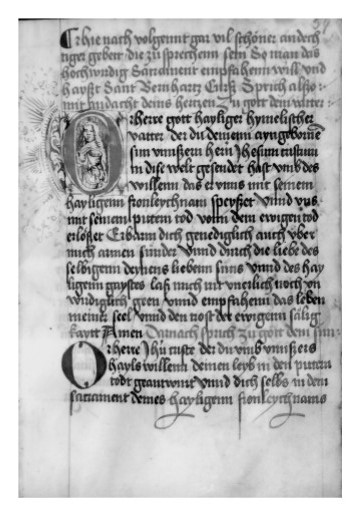 Hie nach volgennt gar vil schöner andech
tiger gebett die zu sprechenn sein So man das
hochwirdig Sacrament empfahenn will vnd
haysst Sant Bernhartz Curß Sprich also
mit andacht deins hertzen zu gott dem vatter
O herre gott hayliger hymelischer
vatter der du deinenn ayngebornne
sun vnnsern hern Jhesum cristum
in dise welt gesendet hast vmb des
willenn das er vnns mit seinem
hayligenn fronleychnam speyßet vnnd vns
mit seinem pittern tod vonn dem ewigen tod
erlößet Erbarm dich genediglich auch vber
mich armen sunder vnnd durch die liebe des
selbigenn deynens liebenn suns vnnd des hay
ligenn gaystes laß mich nit vnerlich noch vn
wirdiglich geen vnnd empfahenn das leben
meiner seel vnnd den trost der ewigenn sälig
kaytt Amen Darnach sprich zu gott dem sun
O herre Jhu criste der du vmb vnnsers
hayls willenn deinen leyb in den pittern
todt geantwurt vnnd dich selbs in dem
sacrament deines hayligenn fronleychnams